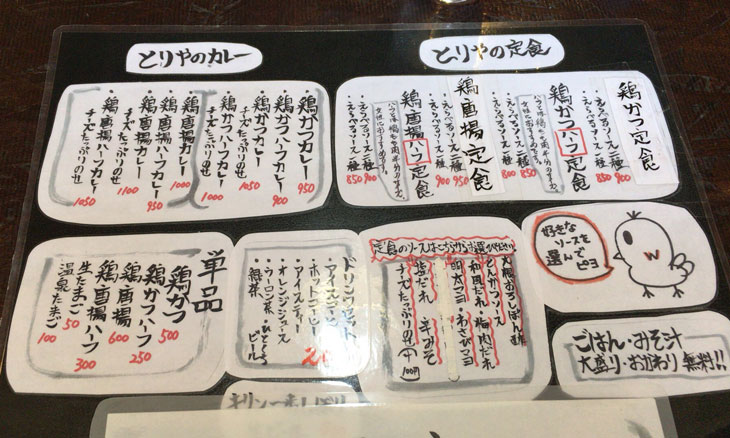 とりやの定食
鶏かつ定食
・えらべるソース二種 900
・えらべるソース一種 850
鶏かつハーフ定食
・えらべるソース二種 850
・えらべるソース一種
鶏唐揚定食
・えらべるソース二種 950
・えらべるソース一種 900
鶏唐揚ハーフ定食
・えらべるソース二種 900
・えらべるソース一種 850
とりやのカレー
・鶏かつカレー 950
・鶏かつハーフカレー 900
・鶏かつカレー
チーズたっぷりのせ 1050
・鶏唐揚カレー 1000
・鶏唐揚ハーフカレー 950
・鶏唐揚カレー
チーズたっぷりのせ 1100
鶏唐揚ハーフカレー
チーズたっぷりのせ 1050
好きな
ソースを
選んで
ピヨ
定食のソースはこちらからお選びください
大根おろしぽん酢
とんかつソース
和風だれ・梅肉だれ
明太マヨ・わさびマヨ
塩だれ 辛みそ
チーズたっぷりのせ(+100円)
ドリンクセット
・アイスコーヒー
・ホットコーヒー
・アイスティー
・オレンジジュース
・ウーロン茶
・緑茶
ビール
単品
鶏かつ 500
鶏かつハーフ 250
鶏唐揚 600
鶏唐揚ハーフ 300
生たまご 50
温泉たまご 100
ごはん・みそ汁
大盛り・おかわり 無料!!
キリン一番しぼり